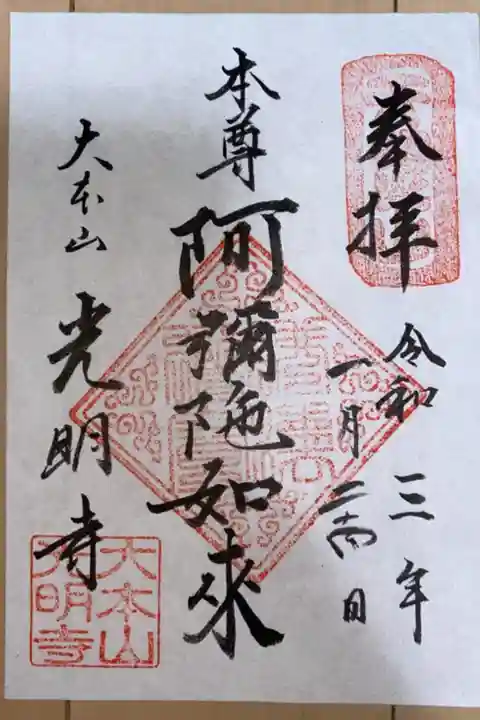 奉拝
令和三年
一月二十四日
本尊
阿彌陁如來
大本山
光明寺
大本山
光明寺